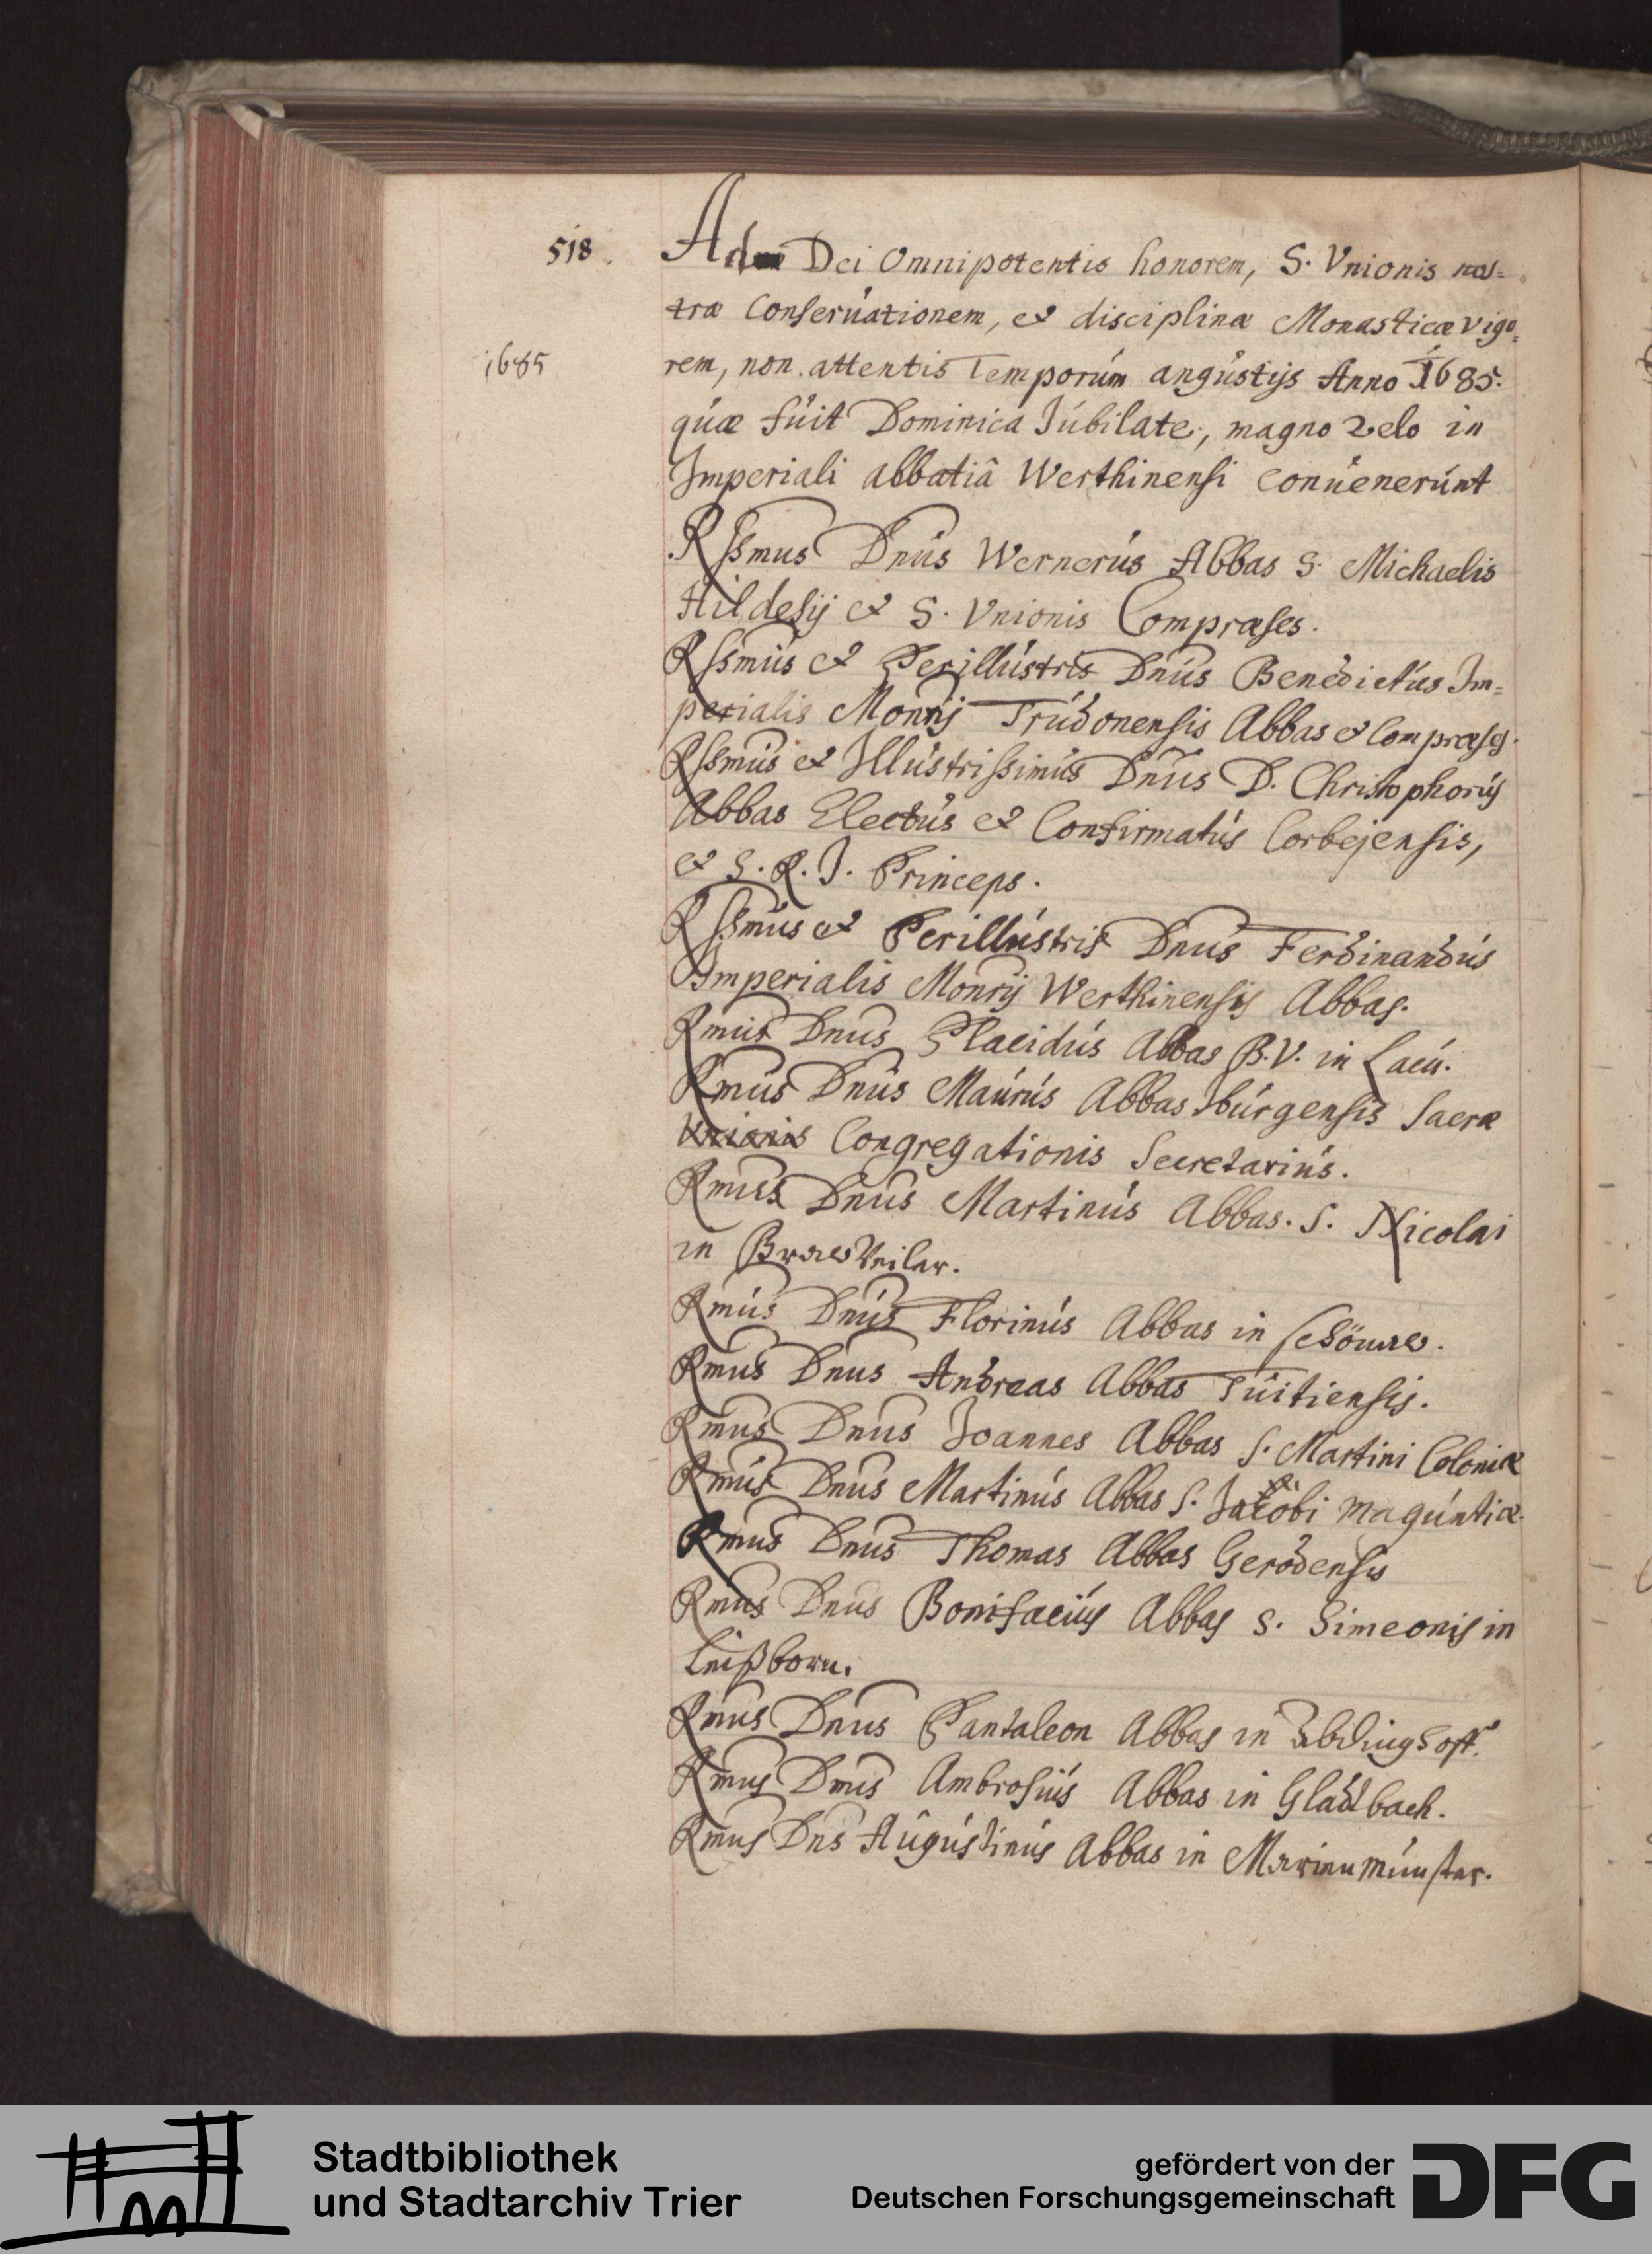 518.
Ad Dei Omnipotentis honorem, S. Vnionis nos=
træ Conseruationem, et disciplinæ Monasticæ vigo=
1685
rem, non attentis Temporum angustijs Anno 1685.
quæ fuit Dominica Jubilate, magno zelo in
Imperiali abbatiâ Werthinensi conuenerunt
Rssmus Dnus Wernerus Abbas S. Michaelis
Hildesij et S. Vnionis Compræses.
Rssmus et Perillustris Dnus Benedictus Im=
perialis Monrij Trudonensis Abbas et Compræses.
Rssmus et Illustrissimus Dnus D. Christophorus
Abbas Electus et Confirmatus Corbejensis,
et S. R. I. Princeps.
Rssmus et Perillustris Dnus Ferdinandus
Imperialis Monrij Werthinensis Abbas.
Rmus Dnus Placidus Abbas B.V. in Lacu.
Rmus Dnus Maurus Abbas Iburgensis Sacræ
Vnionis Congregationis Secretarius.
Rmus Dnus Martinus Abbas. S. Nicolai
in Brauweiler.
Rmus Dnus Florinus Abbas in Schönaw.
Rmus Dnus Andreas Abbas Tuitiensis.
Rmus Dnus Joannes Abbas S. Martini Coloniæ
Rmus Dnus Martinus Abbas S. Jacobi Maguntiæ
Rmus Dnus Thomas Abbas Gerodensis
Rmus Dnus Bonifacius Abbas S. Simeonis in
Leißborn.
Rmus Dnus Pantaleon Abbas in Abdinghoff.
Rmus Dnus Ambrosius Abbas in Gladbach.
Rmus Dns Augustinus Abbas in Marienmünster.
Stadtbibliothek
und Stadtarchiv Trier
gefördert von der
Deutschen Forschungsgemeinschaft
DFG